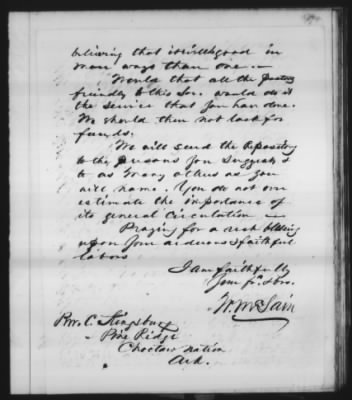 believing that it will do good in
more ways than one. —
Would that all the pastors
friendly to this Soc. would do it
the service that you have done.
We should then not lack for
funds.
We will send the Repository
to the persons you suggest &
to as many others as you
will name. You do not over
estimate the importance of
its general circulation —
Praying for a rich blessing
upon your arduous & faithful
labors
I am faithfully
Your fr. & bro.
W. McLain
Rev. C. Kingsbury
Pine Ridge
Choctaw Nation
Ark.